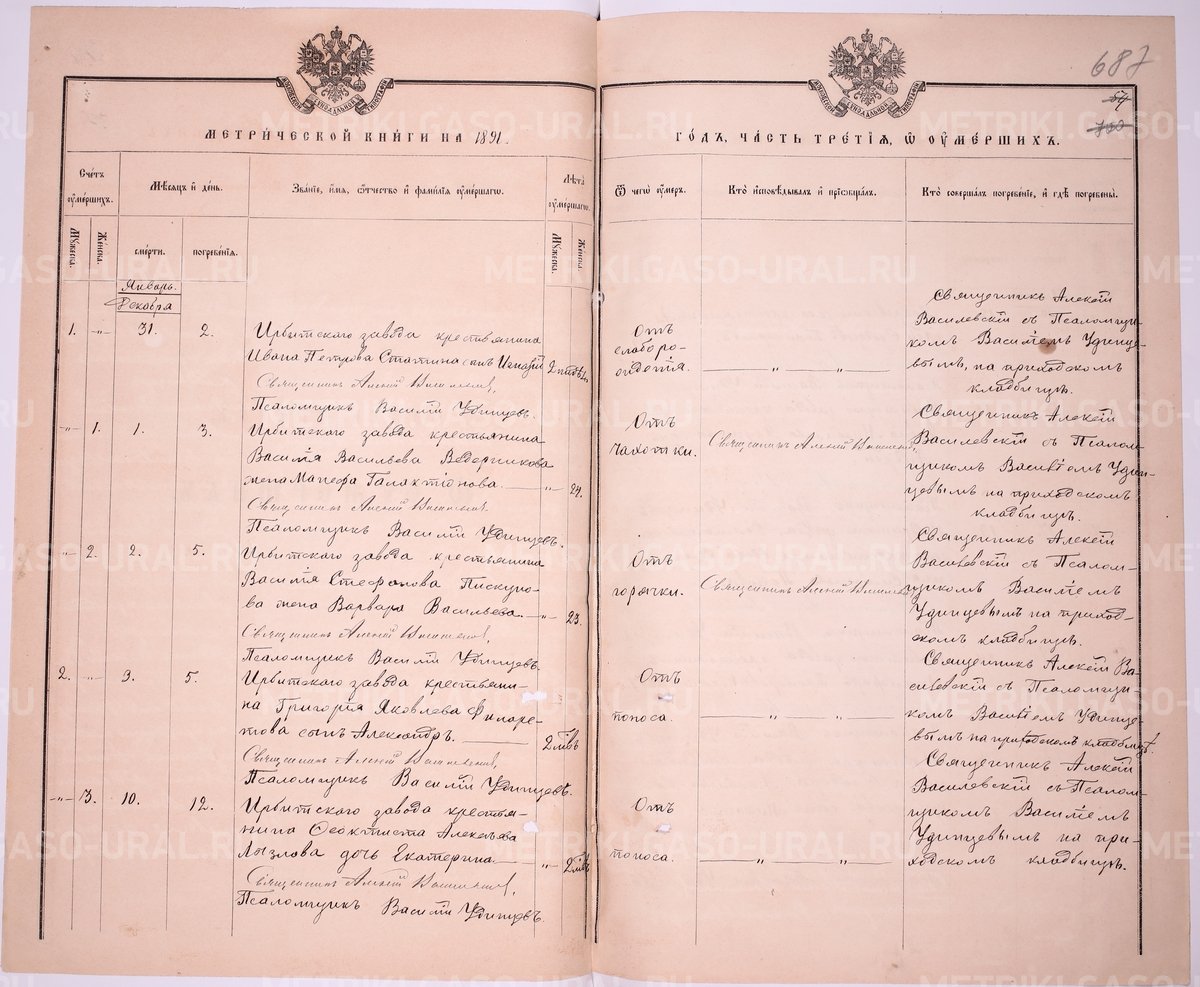 687
54
700
МЕТРИЧЕСКОЙ КНИГИ НА 1891.
ГОДЪ, ЧАСТЬ ТРЕТІЯ, Ѡ ОУМЕРШИХЪ.
Счетъ оумершихъ.
Мѣсяцъ и день.
Званіе, имя, отчество и фамилія оумершаго.
Лѣта оумершаго.
Ѿ чегѡ оумеръ.
Кто исповѣдывалъ и пріобщалъ.
Кто совершалъ погребеніе, и гдѣ погребены.
Мужеска.
Женска.
смерти.
погребенія.
Мужеска.
Женска.
Январь.
Декабря
1. -„- 31. 2.
Ирбитскаго завода крестьянина
Ивана Петрова Статина сынъ Игнатій
Священникъ Алексій Василевскій,
Псаломщикъ Василій Удинцевъ.
Отъ
слаборо-
ждения.
„ „
Священникъ Алексій
Василевскій съ Псаломщи-
комъ Василіемъ Удинце-
вымъ, на приходскомъ
кладбищѣ.
-„- 1. 1. 3.
Ирбитскаго завода крестьянина
Василія Васильева Ведерникова
жена Марѳа Галактіонова. -„- 24.
Священникъ Алексій Василевскій,
Псаломщикъ Василій Удинцевъ.
Отъ
чахотки.
Священникъ Алексій Василевскій,
Священникъ Алексій
Василевскій съ Псалом-
щикомъ Василіемъ Удин-
цевымъ на приходскомъ
кладбищѣ.
-„- 2. 2. 5.
Ирбитскаго завода крестьянина
Василія Стефанова Пискуно-
ва жена Варвара Васильева. -„- 23.
Священникъ Алексій Василевскій,
Псаломщикъ Василій Удинцевъ.
Отъ
горячки.
Священникъ Алексій Василевскій
Священникъ Алексій
Василевскій съ Псалом-
щикомъ Василіемъ
Удинцевымъ на приход-
скомъ кладбищѣ.
2. -„- 3. 5.
Ирбитскаго завода крестьяни-
на Григорія Яковлева Филаре-
това сынъ Александръ. 2 лѣтъ
Священникъ Алексій Василевскій,
Псаломщикъ Василій Удинцевъ.
Отъ
поноса.
„ „
Священникъ Алексій Ва-
силевскій съ Псаломщи-
комъ Василіемъ Удинце-
вымъ на приходскомъ кладбищѣ.
-„- 3. 10. 12.
Ирбитскаго завода крестья-
нина Ѳеоктиста Алексѣева
Лызлова дочь Екатерина. -„- 2 лѣтъ
Священникъ Алексій Василевскій,
Псаломщикъ Василій Удинцевъ.
Отъ
поноса.
„ „
Священникъ Алексій
Василевскій съ Псалом-
щикомъ Василіемъ
Удинцевымъ на при-
ходскомъ кладбищѣ.
METRIKI.GASO-URAL.RU